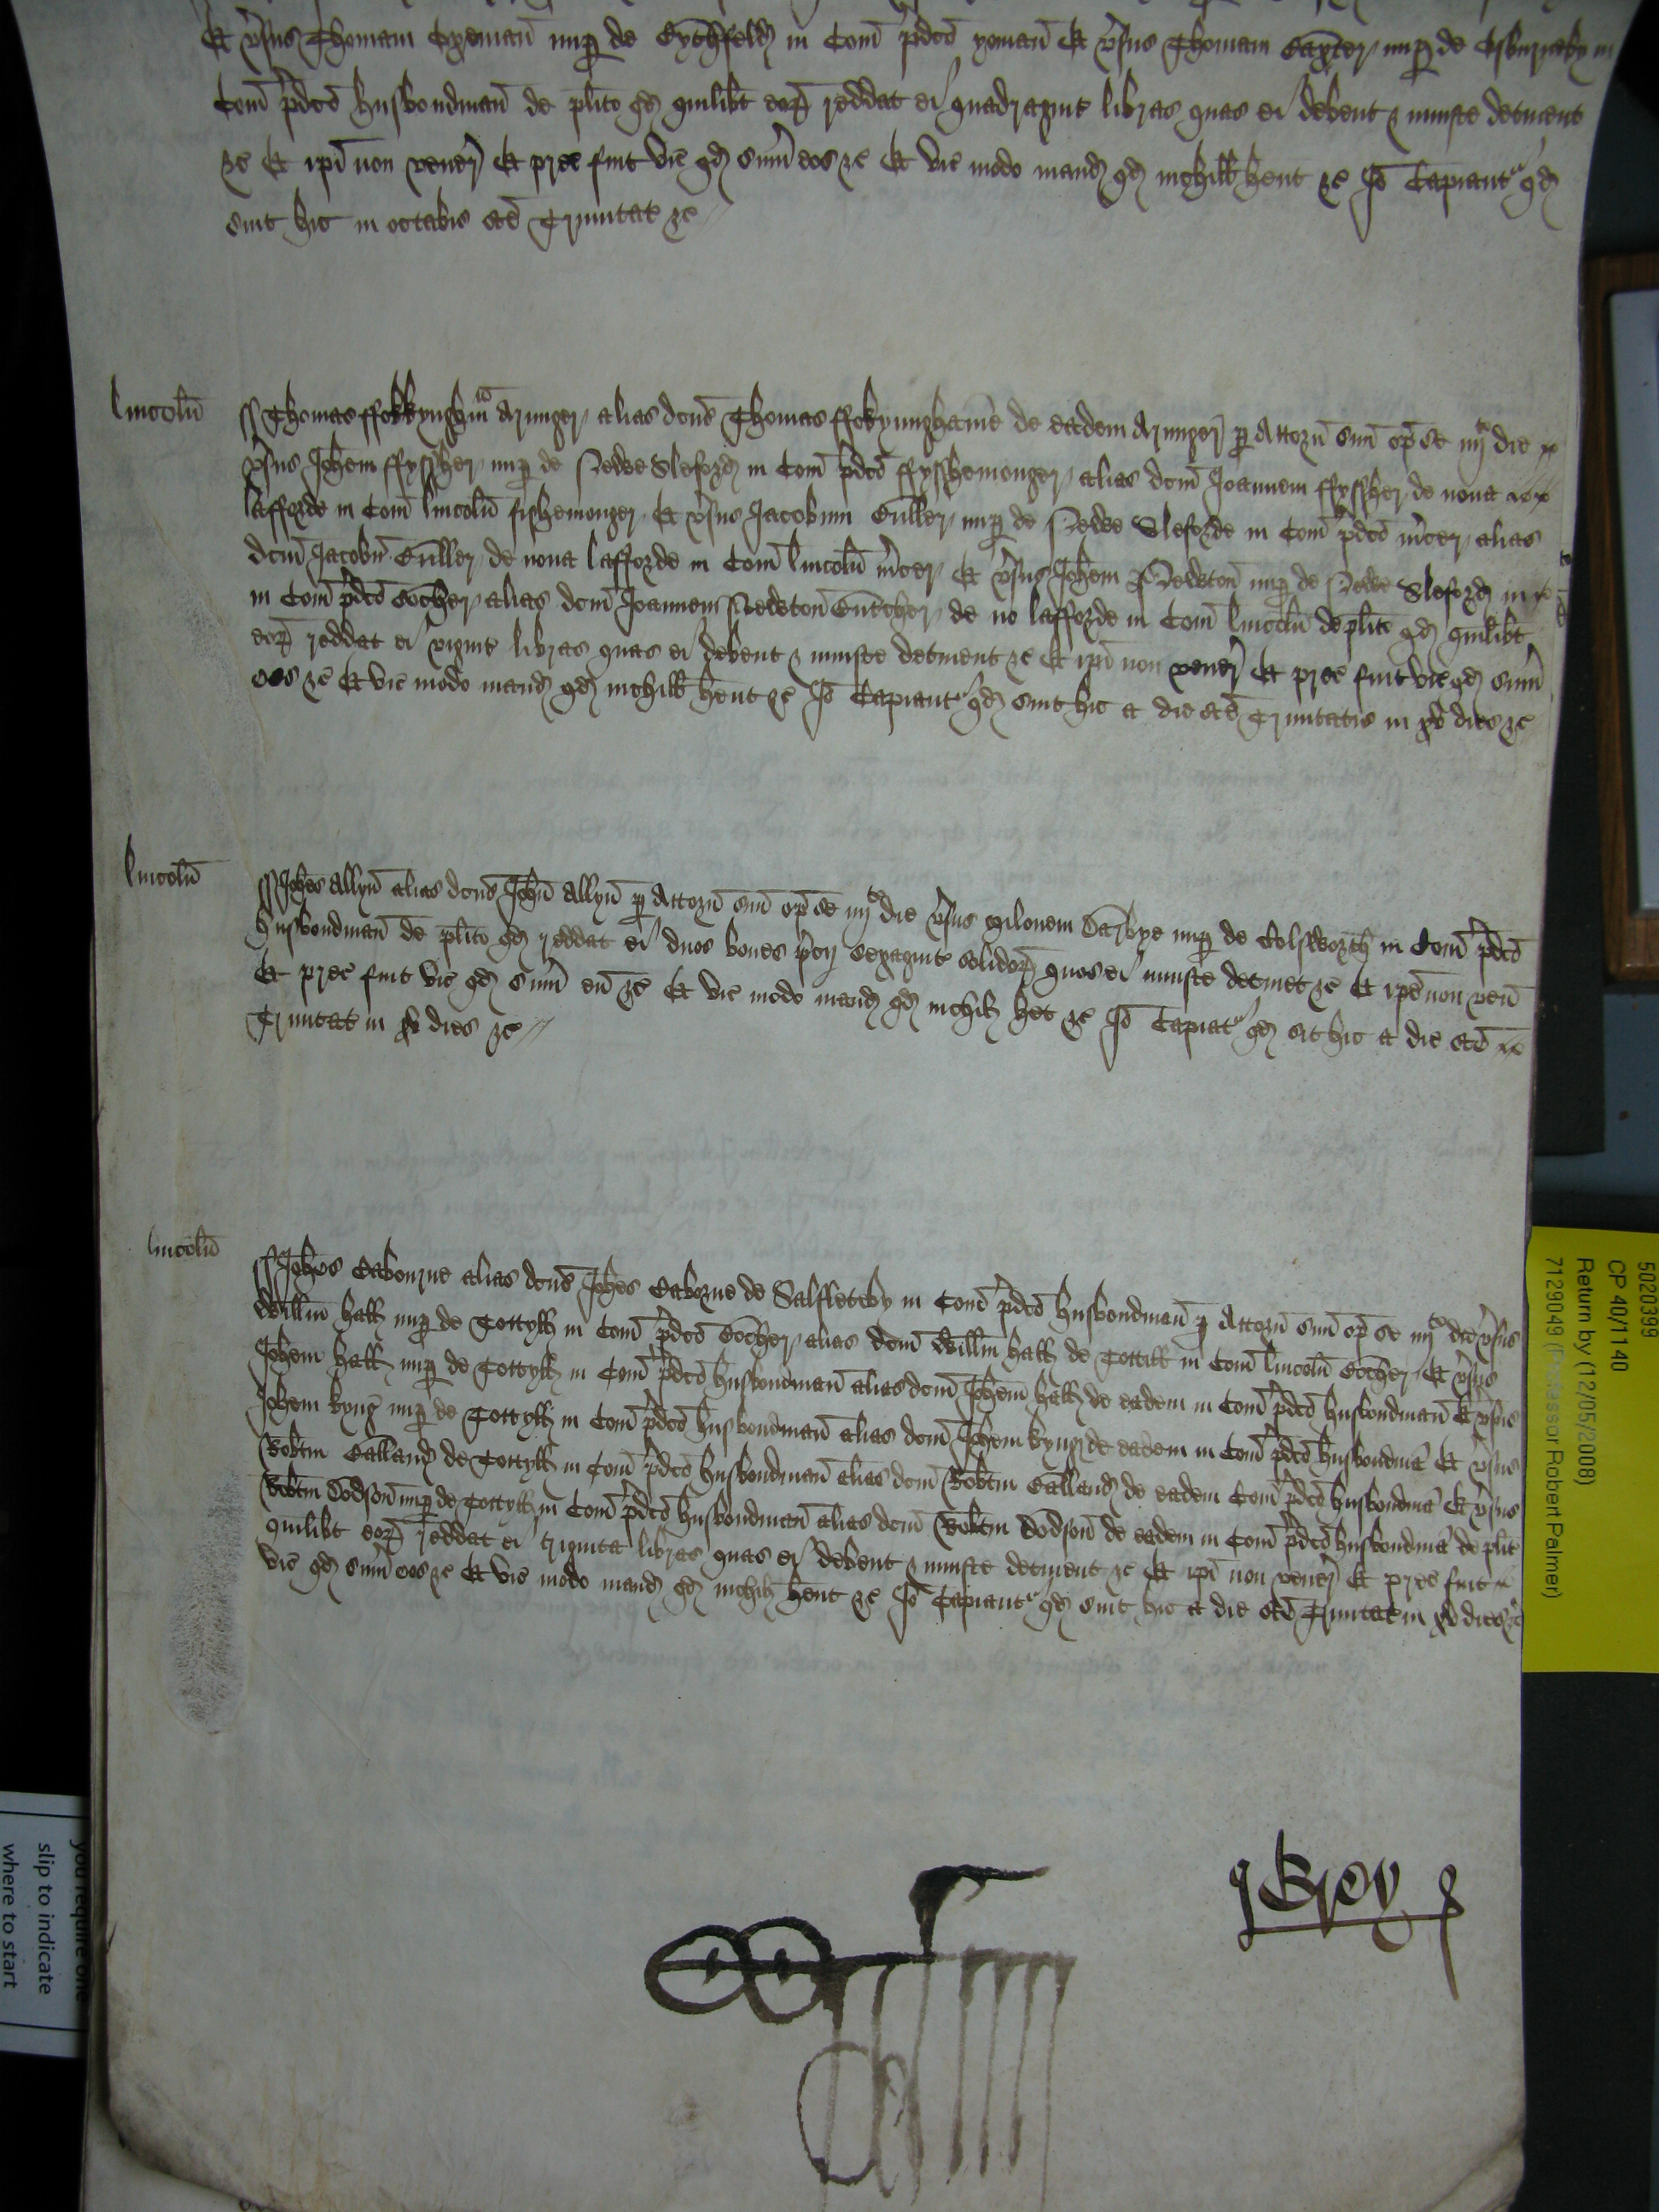 Et vsus Thomam Oxeman nup de Cythfeld in Com pdco yoman Et vsus Thomam Baxter nup de Asburneby in
Com pdco husbondman de plito qd quilibt eor reddat ei quadragint libras quas ei debent & iniuste detinent
&c Et ipi non vener Et prec fuit vic qd sum eos &c Et vic modo mand qd nichill hent &c Io Capiantr qd
sint hic in octabis sce Trinitat &c
Lincoln
ss Thomas ffokkynghm Armiger alias dcus Thomas ffokynghame de eadem Armiger p Attorn suu op se iiijto die
vsus Johem ffyssher nup de Newe Sleford in Com pdco ffysshemonger alias dcm Joannem ffyssher de nova
lafforde in Com lincoln fishemonger Et vsus Jacobum Buller nup de Newe Sleforde in Com pdco mcer alias
dcm Jacobu Buller de nova lafforde in Com lincoln mcer Et vsus Johem Newton nup de Newe Sleford in
in Com pdco Bocher alias dcm Joannem Newton Butcher de no lafforde in Com lincoln de plito qd quilibt
eor reddat ei vigint libras quas ei debent & iniuste detinent &c Et ipi non vener Et prec fuit vic qd sum
eos &c Et vic modo mand qd nichill hent &c Io Capiantr qd sint hic a die sce Trinitatis in xv dies &c
Lincoln
ss Johes Allyn alias dcus John Allyn p Attorn suu op se iiijto die vsus Milonem Darbye nup de Colsworth in Com pdco
husbondman de plito qd reddat ei duos boves pcij sexagint solidor quos ei iniuste detinet &c Et ipe non ven
Et prec fuit vic qd sum eu &c Et vic modo mand qd nichil het &c Io Capiatr qd sit hic a die sce
Trinitat in xv dies &c
lincoln
ss Johes Cabourne alias dcus Johes Caborne de Salfleteby in Com pdco husbondman p Attorn suu op se iiijto die vsus
Willm hall nup de Tottyll in Com pdco Bocher alias dcm Willm hall de Tottill in Com lincoln Bocher Et vsus
Johem hall nup de Tottyll in Com pdco husbondman alias dcm Johem hall de eadem in Com pdco husbondman Et vsus
Johem kyng nup de Tottyll in Com pdco husbondman alias dcm Johem kyng de eadem in Com pdco husbondma Et vsus
Robtm Calland de Tottyll in Com pdco husbondman alias dcm Robtm Calland de eadem Com pdco husbondma Et vsus
Robtm Dodson nup de Tottyll in Com pdco husbondman alias dcm Robtm Dodson de eadem in Com pdco husbondma de plit
quilibt eor reddat ei triginta libras quas ei debent & iniuste detinent &c Et ipi non vener Et prec fuit
vic qd sum eos &c Et vic modo mand qd nichil hent &c Io Capiantr qd sint hic a die sce Trinitat in xv dies &c
5020399
CP 40/1140
Return by (12/05/2008)
7129049 (Professor Robert Palmer)
you require one
slip to indicate
where to start